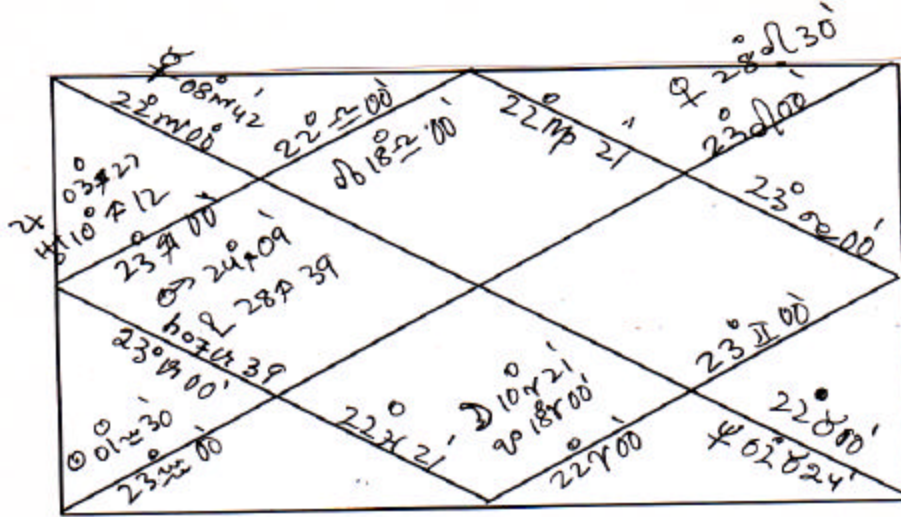 08°♏42
22°♏00'
22°♎00'
☊18°♎00'
22°♍21'
♀ 28°♌30'
23°♌00'
23°♋00'
♃ 03°♐27
10°♐12
23°♐00'
♂ 24°♐09
28♐39
♄07♑39
23°♑00'
☉01♒30'
23°♒00'
22°♓21'
☽10°♈21'
☋18♈00'
22°♈00'
22°♉00'
♆02°♉24'
23°♊00'